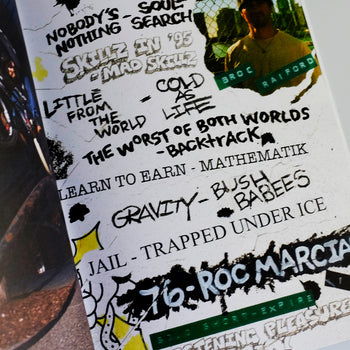 NOBODY'S SOUL-
NOTHING SEARCH
SKILLZ IN '95
- MAD SKILLZ
BROC RAIFORD
LITTLE - COLD
FROM AS
THE LIFE
WORLD
THE WORST OF BOTH WORLDS
- BACKTRACK
LEARN TO EARN - MATHEMATIK
GRAVITY - BUSH
BABEES
JAIL - TRAPPED UNDER ICE
'76 - ROC MARCIA
SOLO SHORT-EXPIRE
STENING PLEASURE